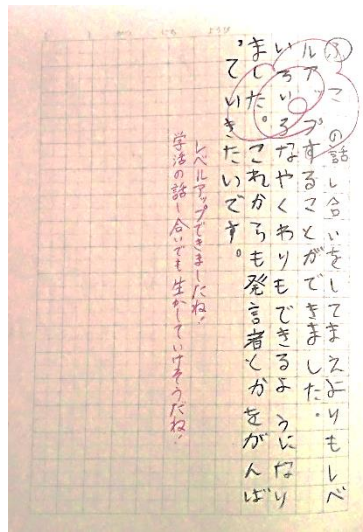 ふ この話し合いをしてまえよりもレベ
ルアップすることができました。
いろいろなやくわりもできるようになり
ました。これからも発言者とかをがんば
っていきたいです。
レベルアップできましたね!
学活の話し合いでも生かしていけそうだね!